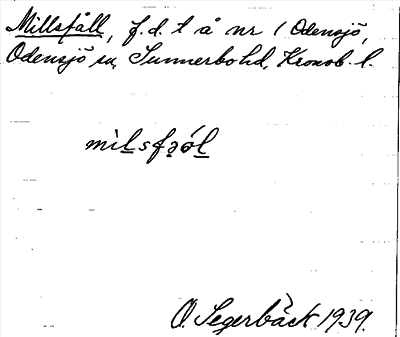 Millsfåll, f.d. t å nr 1 Odensjö,
Odensjö sn, Sunnerbo hd, Kronob. l.
mìlsfəól
O. Segerbäck 1939.